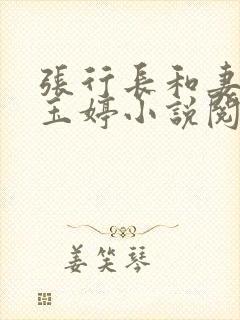 張行長和妻
玉婷小說閱
姜笑琴